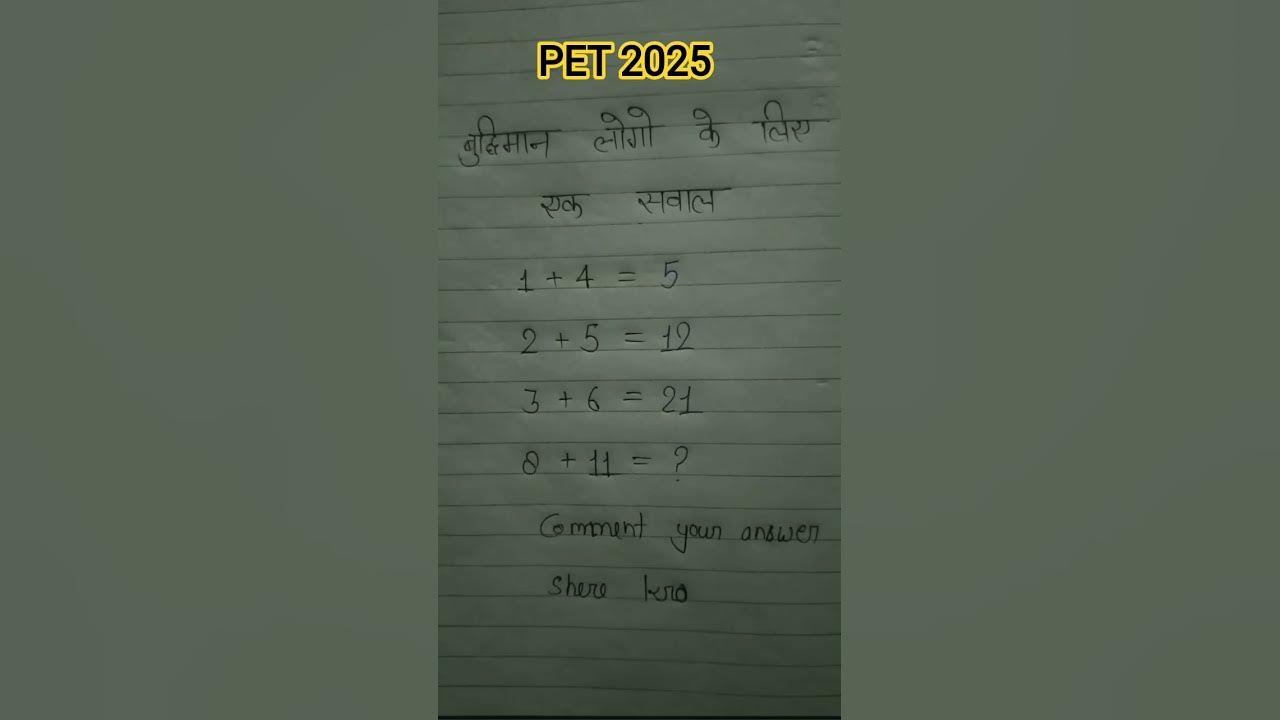 PET 2025
बुद्धिमान लोगो के लिए
एक सवाल
1 + 4 = 5
2 + 5 = 12
3 + 6 = 21
8 + 11 = ?
Comment your answer
Shere kro